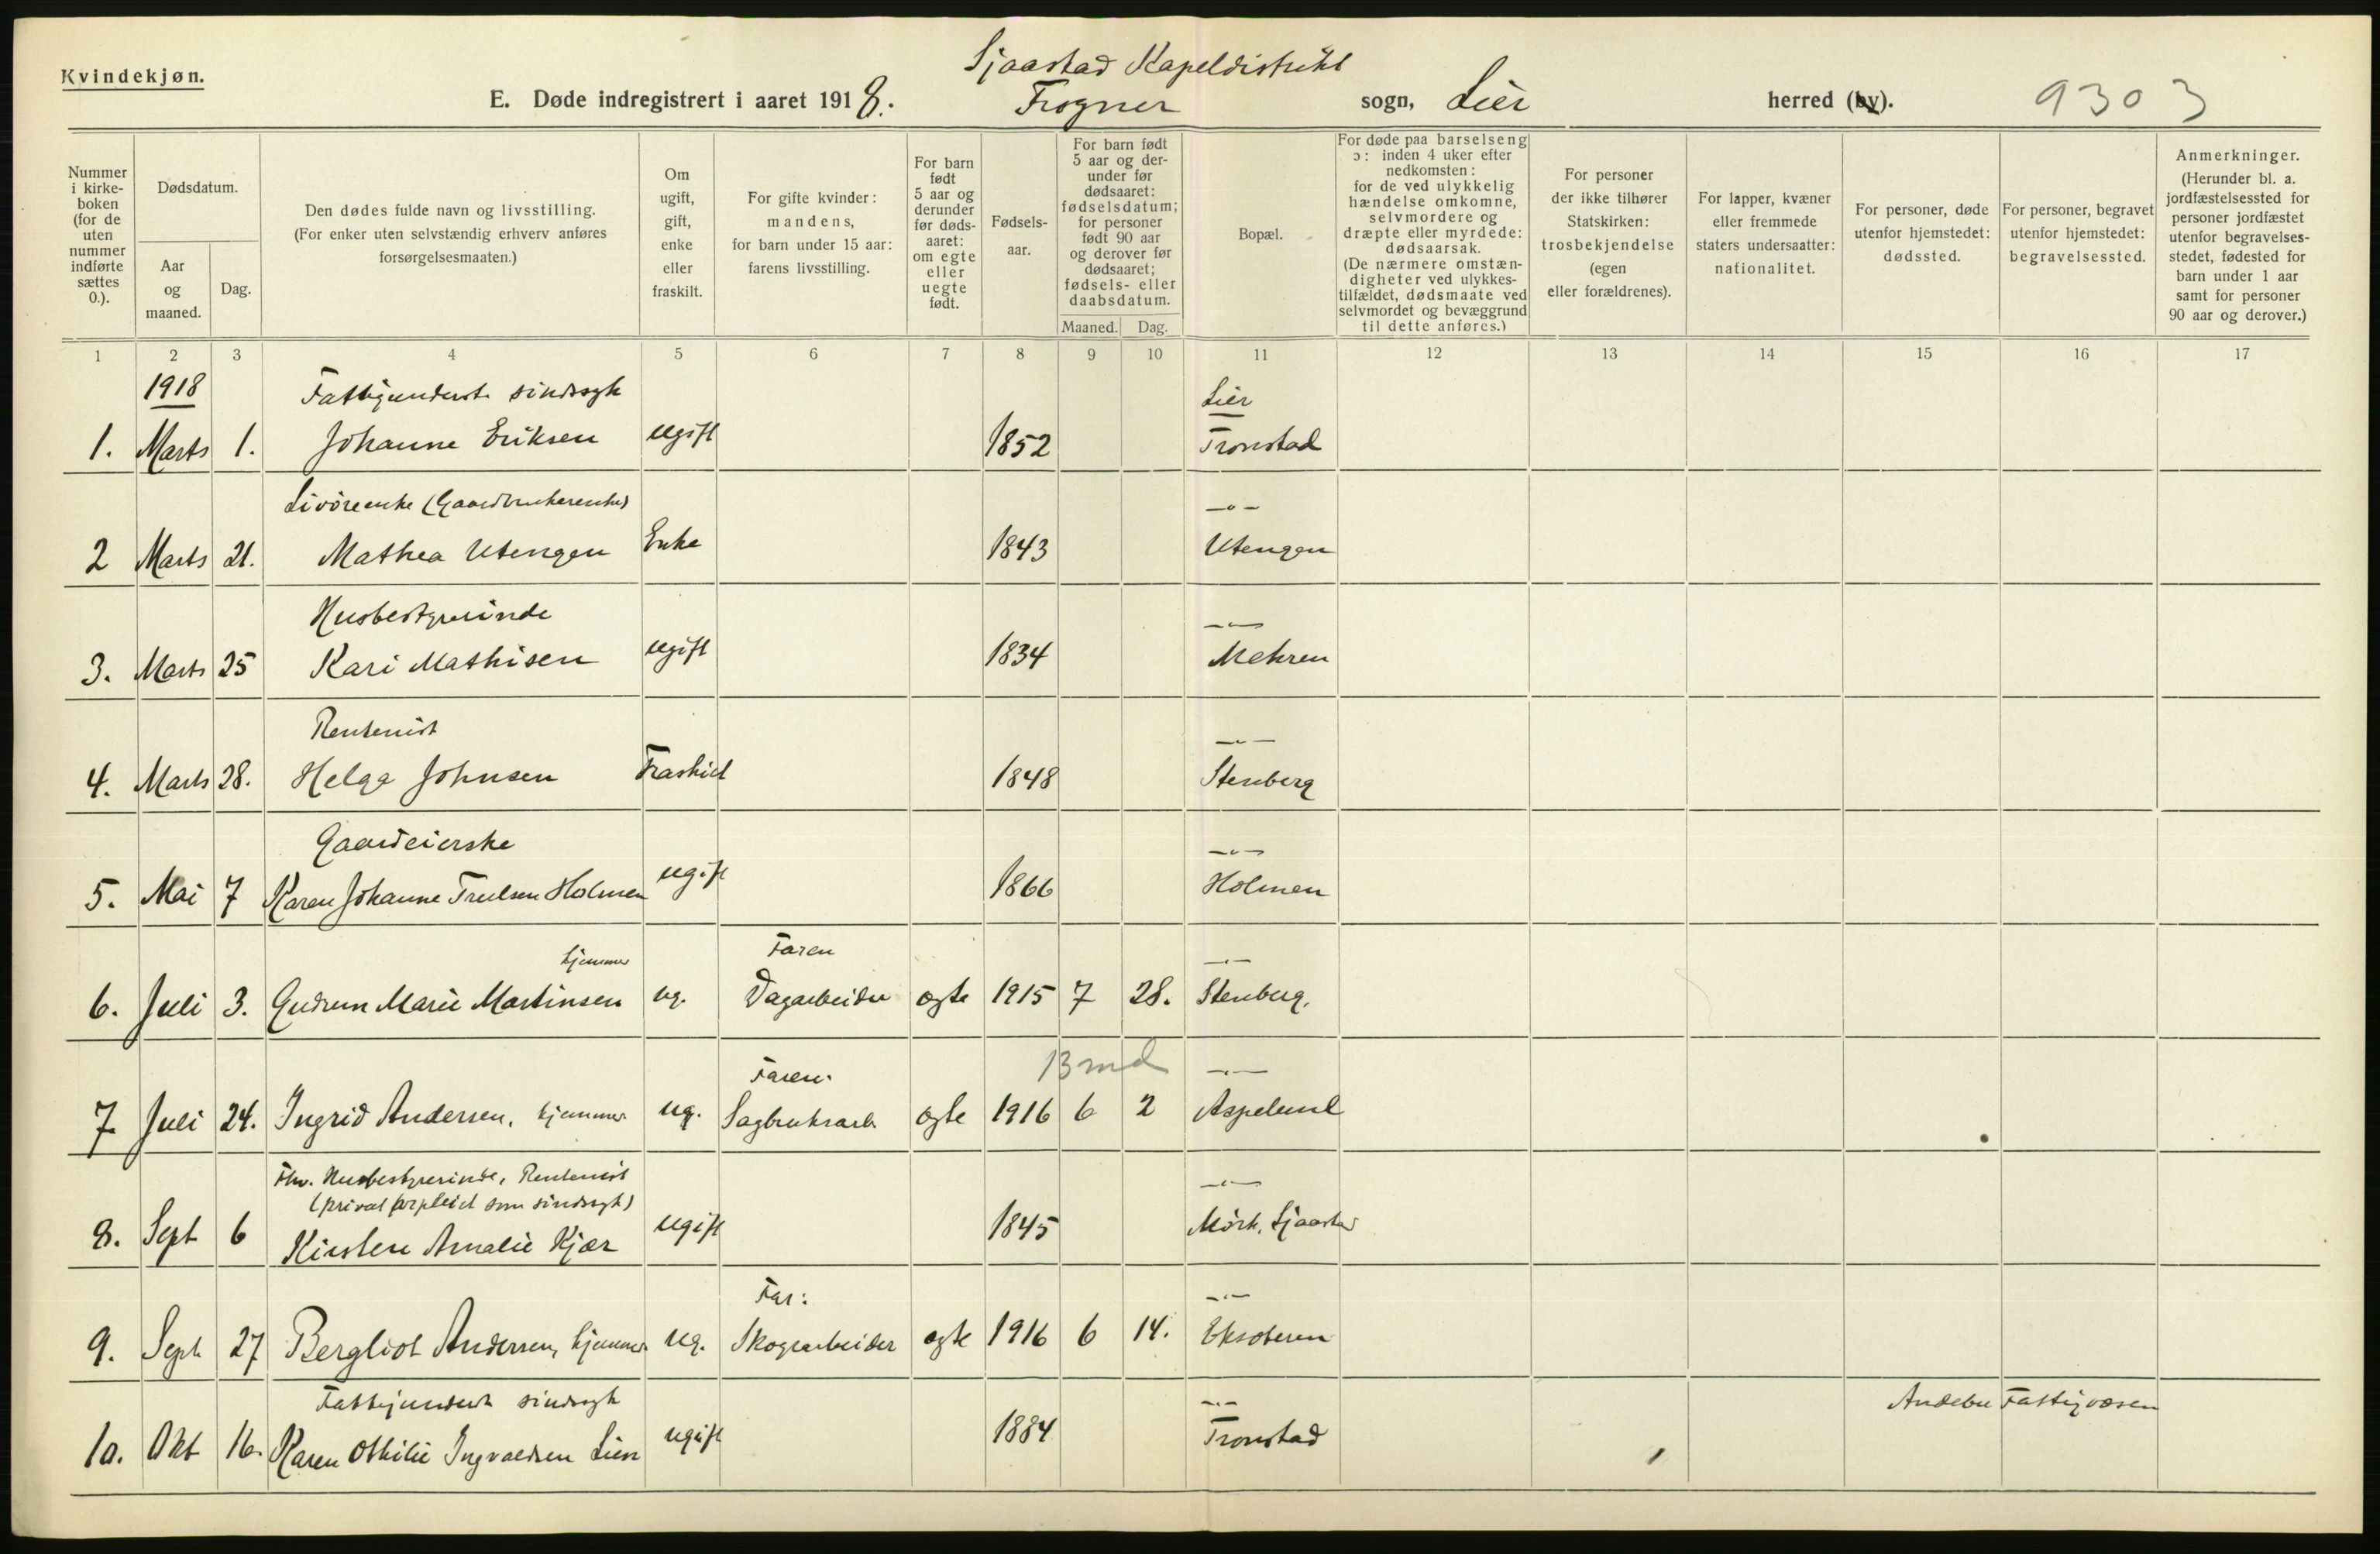 Kvindekjøn.
Sjaastad Kapeldistrikt
E. Døde indregistrert i aaret 1918. Frogner sogn, Lier herred (by). 9303
Nummer i kirke-boken (for de uten nummer indførte sættes 0.).
Dødsdatum.
Aar og maaned.
Dag.
Den dødes fulde navn og livsstilling.
(For enker uten selvstændig erhverv anføres forsørgelsesmaaten.)
Om ugift, gift, enke eller fraskilt.
For gifte kvinder: mandens, for barn under 15 aar: farens livsstilling.
For barn født 5 aar og derunder før døds-aaret: om egte eller uegte født.
Fødsels-aar.
For barn født 5 aar og der-under før dødsaaret: fødselsdatum; for personer født 90 aar og derover før dødsaaret; fødsels- eller daabsdatum.
Maaned. Dag.
Bopæl.
For døde paa barselseng ɔ: inden 4 uker efter nedkomsten: for de ved ulykkelig hændelse omkomne, selvmordere og dræpte eller myrdede: dødsaarsak. (De nærmere omstæn-digheter ved ulykkes-tilfældet, dødsmaate ved selvmordet og bevæggrund til dette anføres.)
For personer der ikke tilhører Statskirken: trosbekjendelse (egen eller forældrenes).
For lapper, kvæner eller fremmede staters undersaatter: nationalitet.
For personer, døde utenfor hjemstedet: dødssted.
For personer, begravet utenfor hjemstedet: begravelsessted.
Anmerkninger. (Herunder bl. a. jordfæstelsessted for personer jordfæstet utenfor begravelses-stedet, fødested for barn under 1 aar samt for personer 90 aar og derover.)
1 2 3 4 5 6 7 8 9 10 11 12 13 14 15 16 17
1918 Fattigunderst. sindssyk Lier
1. Marts 1. Johanne Eriksen ugift 1852 Tronstad
Livøreenke (Gaardbrukerenke) —o—
2 Marts 21. Mathea Utengen Enke 1843 Utengen
Husbestyrerinde —"—
3. Marts 25 Kari Mathisen ugift 1834 Mehren
Rentenist —"—
4. Marts 28. Helga Johnsen Fraskilt 1848 Stenberg
Gaardeierske —"—
5. Mai 7 Karen Johanne Trulsen Holmen ugift 1866 Holmen
hjemme Faren —"—
6. Juli 3. Gudrun Marie Martinsen ug. Dagarbeider egte 1915 7 28. Stenberg.
Faren. 13 md —"—
7. Juli 24. Ingrid Andersen, hjemme ug. Sagbruksarb. egte 1916 6 2 Aspelund
Fhv. Husbestyrerinde, Rentenist
(privat forpleiet som sindssyk) —"—
8. Sept 6 Kirsten Amalie Kjær ugift 1845 Mörk, Sjaastad
Far: —"—
9. Sept 27 Bergliot Andersen, hjemme ug. Skogsarbeider egte 1916 6 14. Eksoteren
Fattigunderst sindssyk —"— Andebu Fattigvæsen
10. Okt 16. Karen Othilie Ingvaldsen Lien ugift 1884 Tronstad